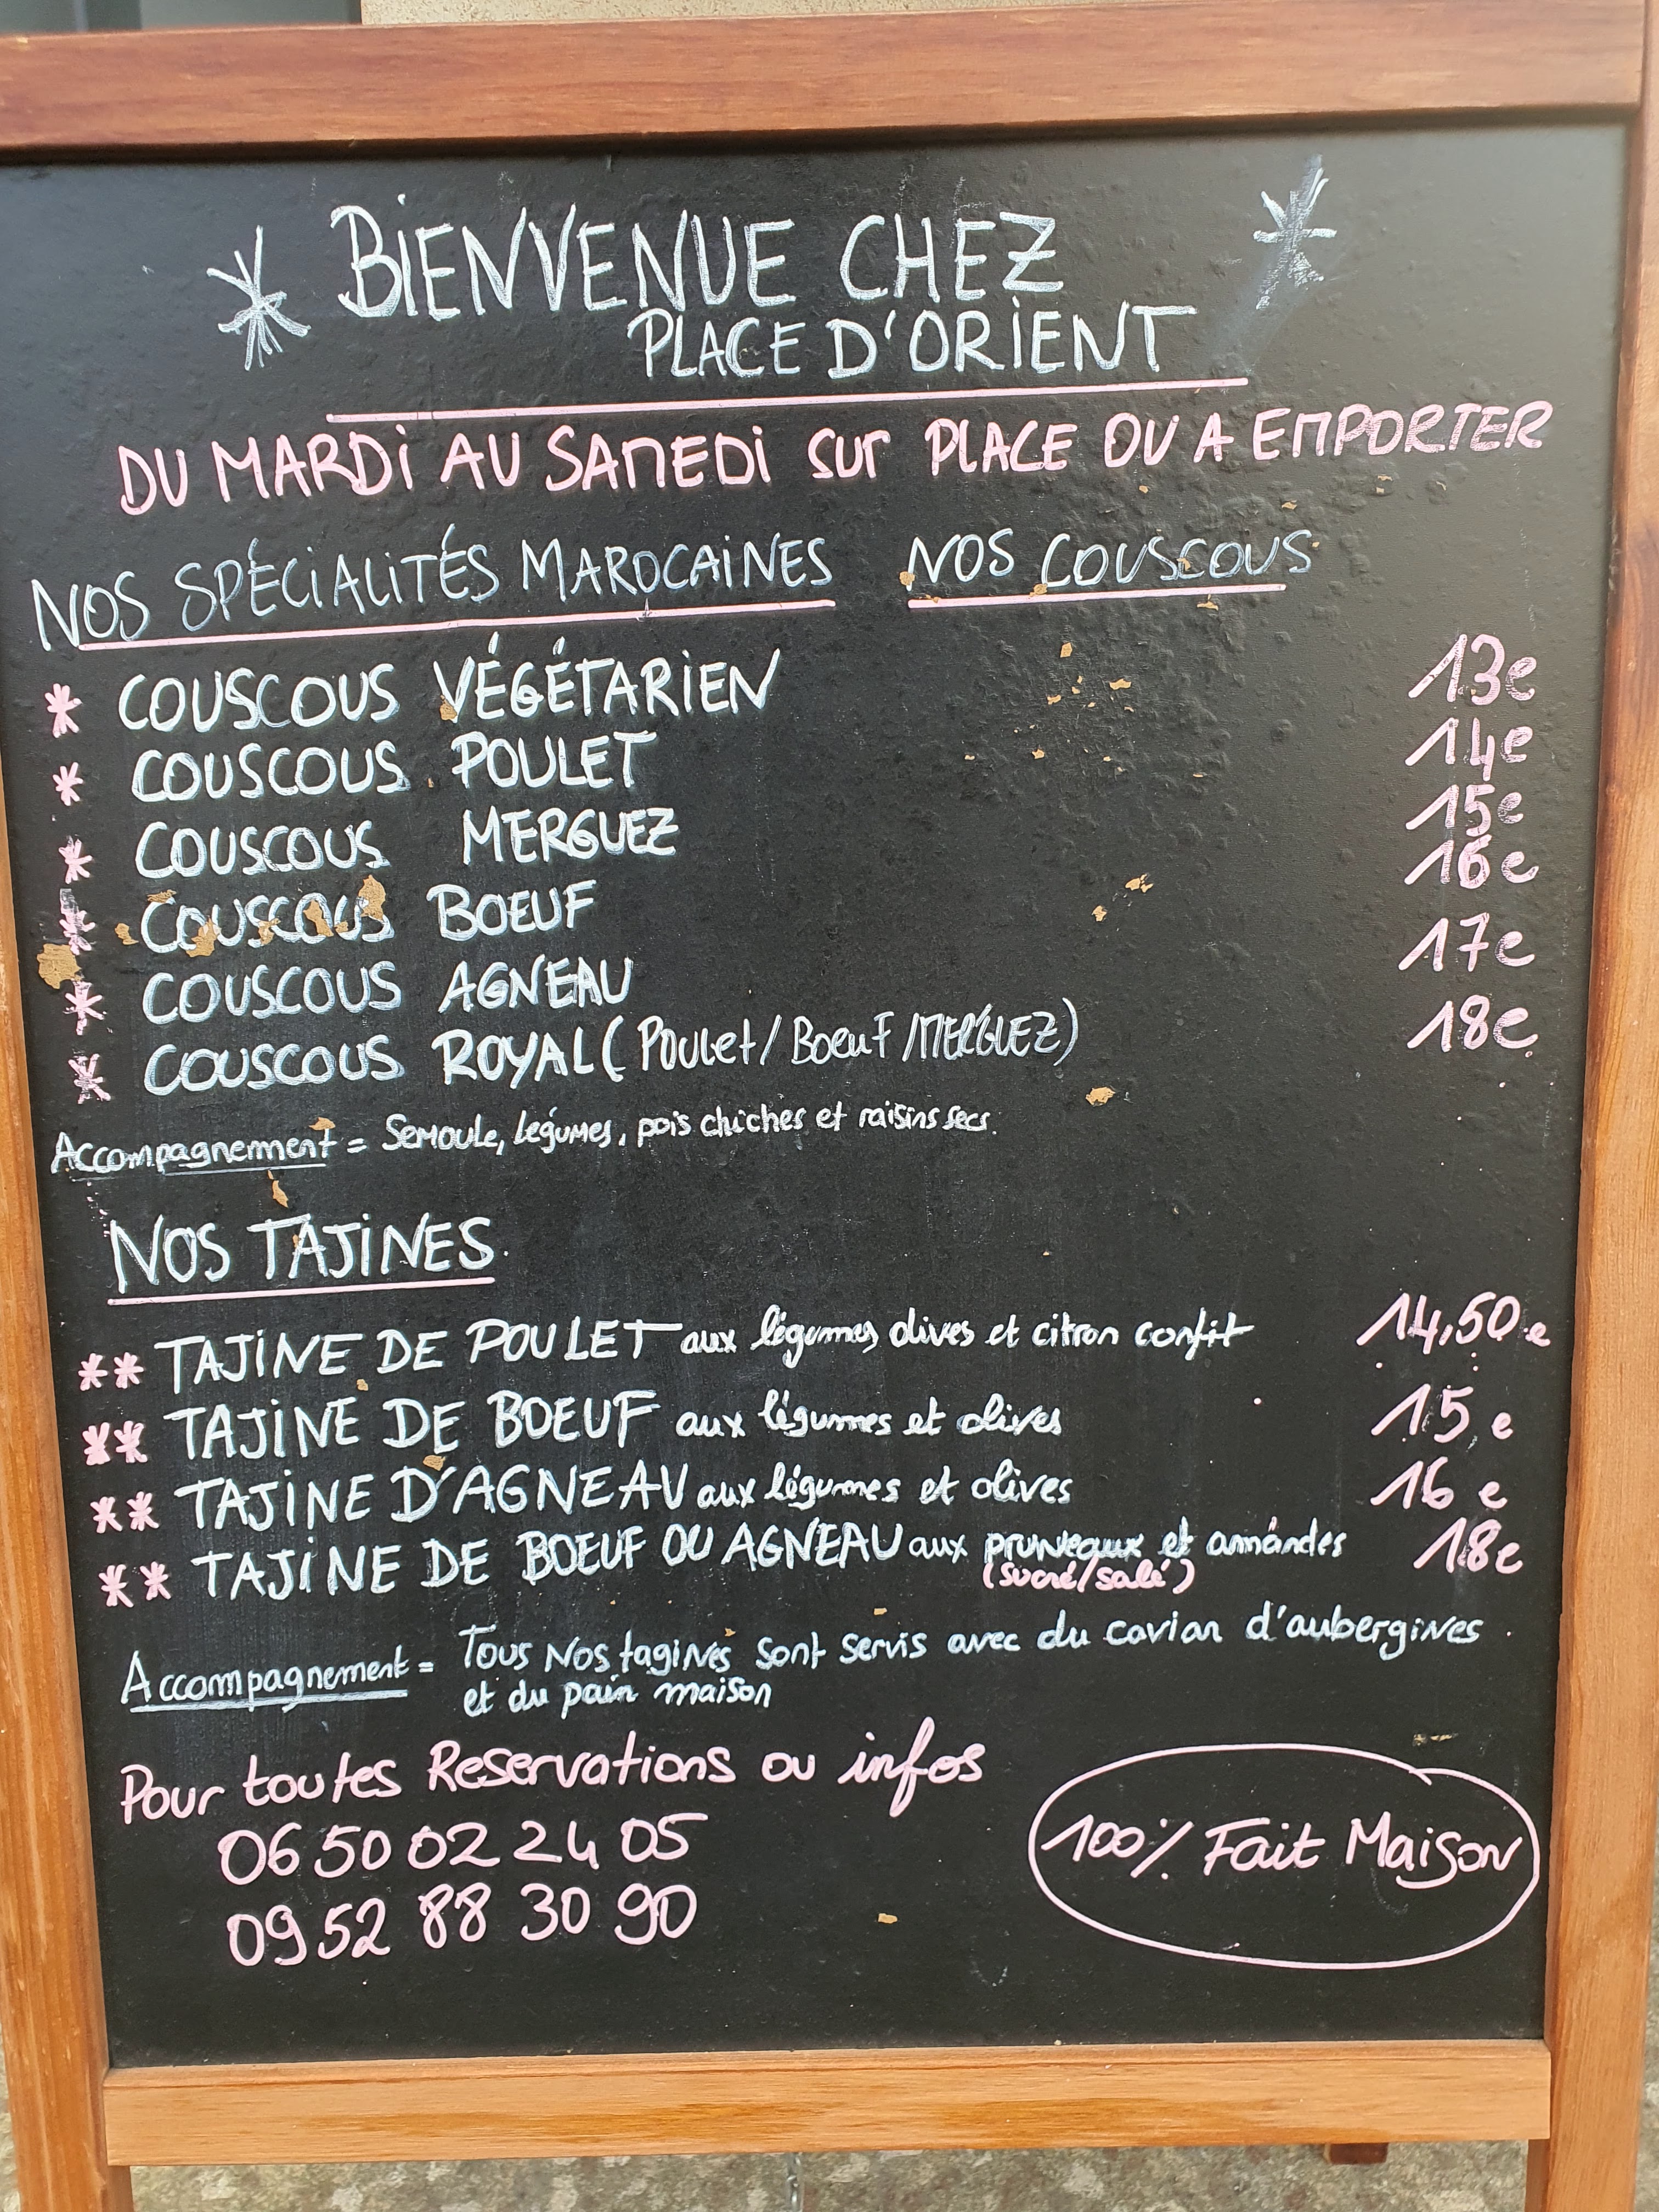 BIENVENUE CHEZ
PLACE D'ORIENT
DU MARDI AU SAMEDI SUR PLACE OU A EMPORTER
NOS SPÉCIALITÉS MAROCAINES NOS COUSCOUS
* COUSCOUS VÉGÉTARIEN 13e
* COUSCOUS POULET 14e
* COUSCOUS MERGUEZ 15e
* COUSCOUS BOEUF 16e
* COUSCOUS AGNEAU 17e
* COUSCOUS ROYAL (POULET/BOEUF/MERGUEZ) 18e
Accompagnement = Semoule, légumes, pois chiches et raisins secs.
NOS TAJINES
** TAJINE DE POULET aux légumes olives et citron confit 14,50e
** TAJINE DE BOEUF aux légumes et olives 15e
** TAJINE D'AGNEAU aux légumes et olives 16e
** TAJINE DE BOEUF OU AGNEAU aux pruneaux et amandes 18e
(sucré/salé)
Accompagnement = Tous nos tagines sont servis avec du caviar d'aubergines.
et du pain maison
Pour toutes Reservations ou infos
06 50 02 24 05
09 52 88 30 90
100% Fait Maison